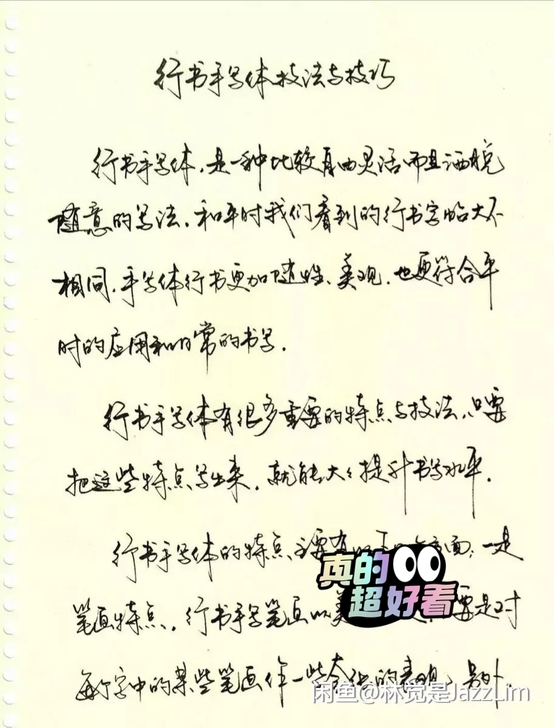 行书手写体技法与技巧
行书手写体,是一种比较自由灵活而且洒脱
随意的写法,和平时我们看到的行书字帖大不
相同,手写体行书更加随性、美观,也更符合平
时的应用和日常的书写。
行书手写体有很多重要的特点与技法,只要
把这些特点写出来,就能大大提升书写水平。
行书手写体的特点主要有以下 方面:一是
笔画特点,行书手写笔画以 要是对
每个字中的某些笔画作一些夸张的表现,另外
真的
超好看
闲鱼@林觉是JazzLim